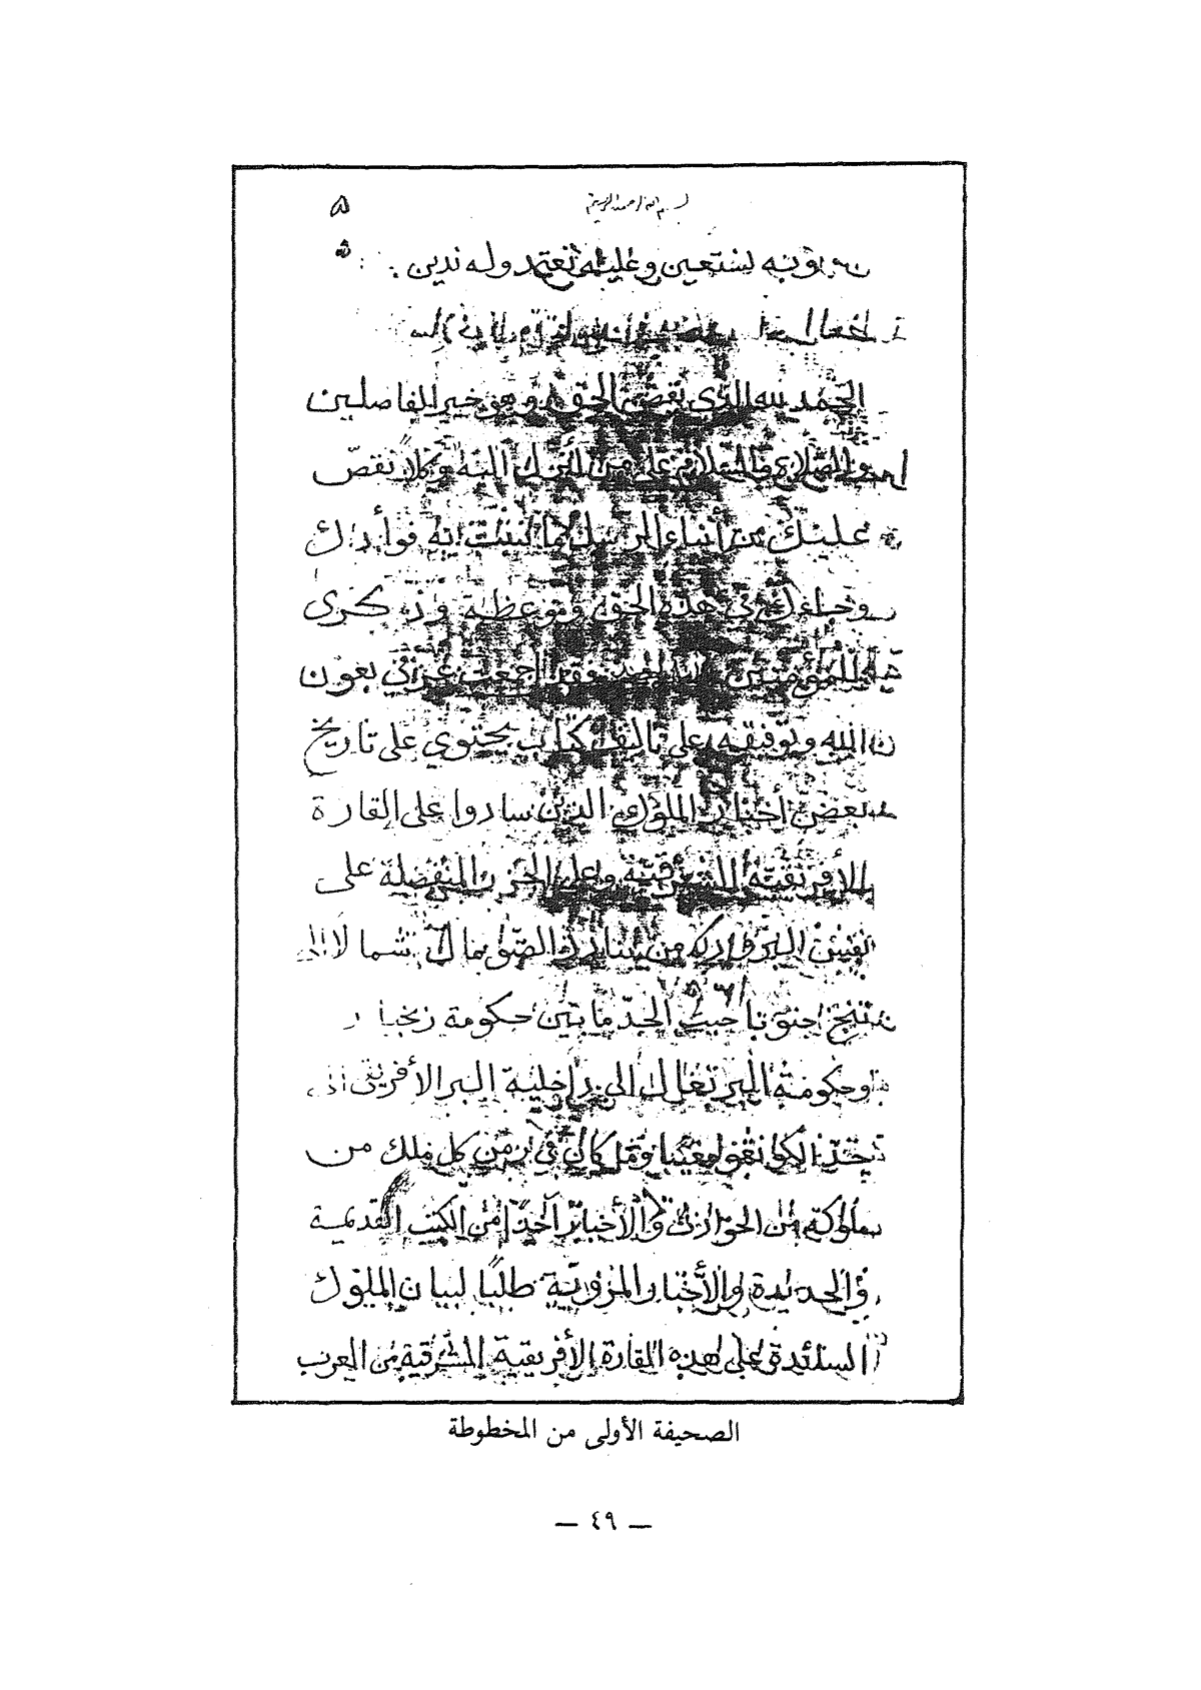 بسم الله الرحمن الرحيم ٥
وبه نستعين وعليه نعتمد وله ندين
الحمد لله الذي يقص الحق وهو خير الفاصلين
والصلاة والسلام على من أنزل اليه وكلاً نقصّ
عليك من أنباء الرسل ما نثبت به فوأدك
وجاءك في هذه الحق وموعظة وذكرى
للمؤمنين فقد اجمعت عزمي بعون
الله وتوفيقه على تأليف كتاب يحتوي على تاريخ
بعض أخبار الملوك الذين سادوا على القارة
الأفريقية الشرقية وعلى الجزر المنفصلة على
نفس البر من الصومال شمالا الى
جنوبا حيث الحدّ ما بين حكومة زنجبار
وحكومة البرتغال الى داخلية البر الأفريقي الى
حد الكونقو كان في زمن كل ملك من
ملوكه من الحوادث والأخبار آخذا من الكتب القديمة
والجديدة والأخبار المروية طلبًا لبيان الملوك
السائدة على هذه القارة الأفريقية الشرقية من العرب
الصحيفة الأولى من المخطوطة
— ٤٩ —